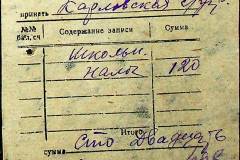 принять Карловская
№№ Содержание записи Сумма
Школьн.
налог 120
Итого:
сумма Сто двадцать